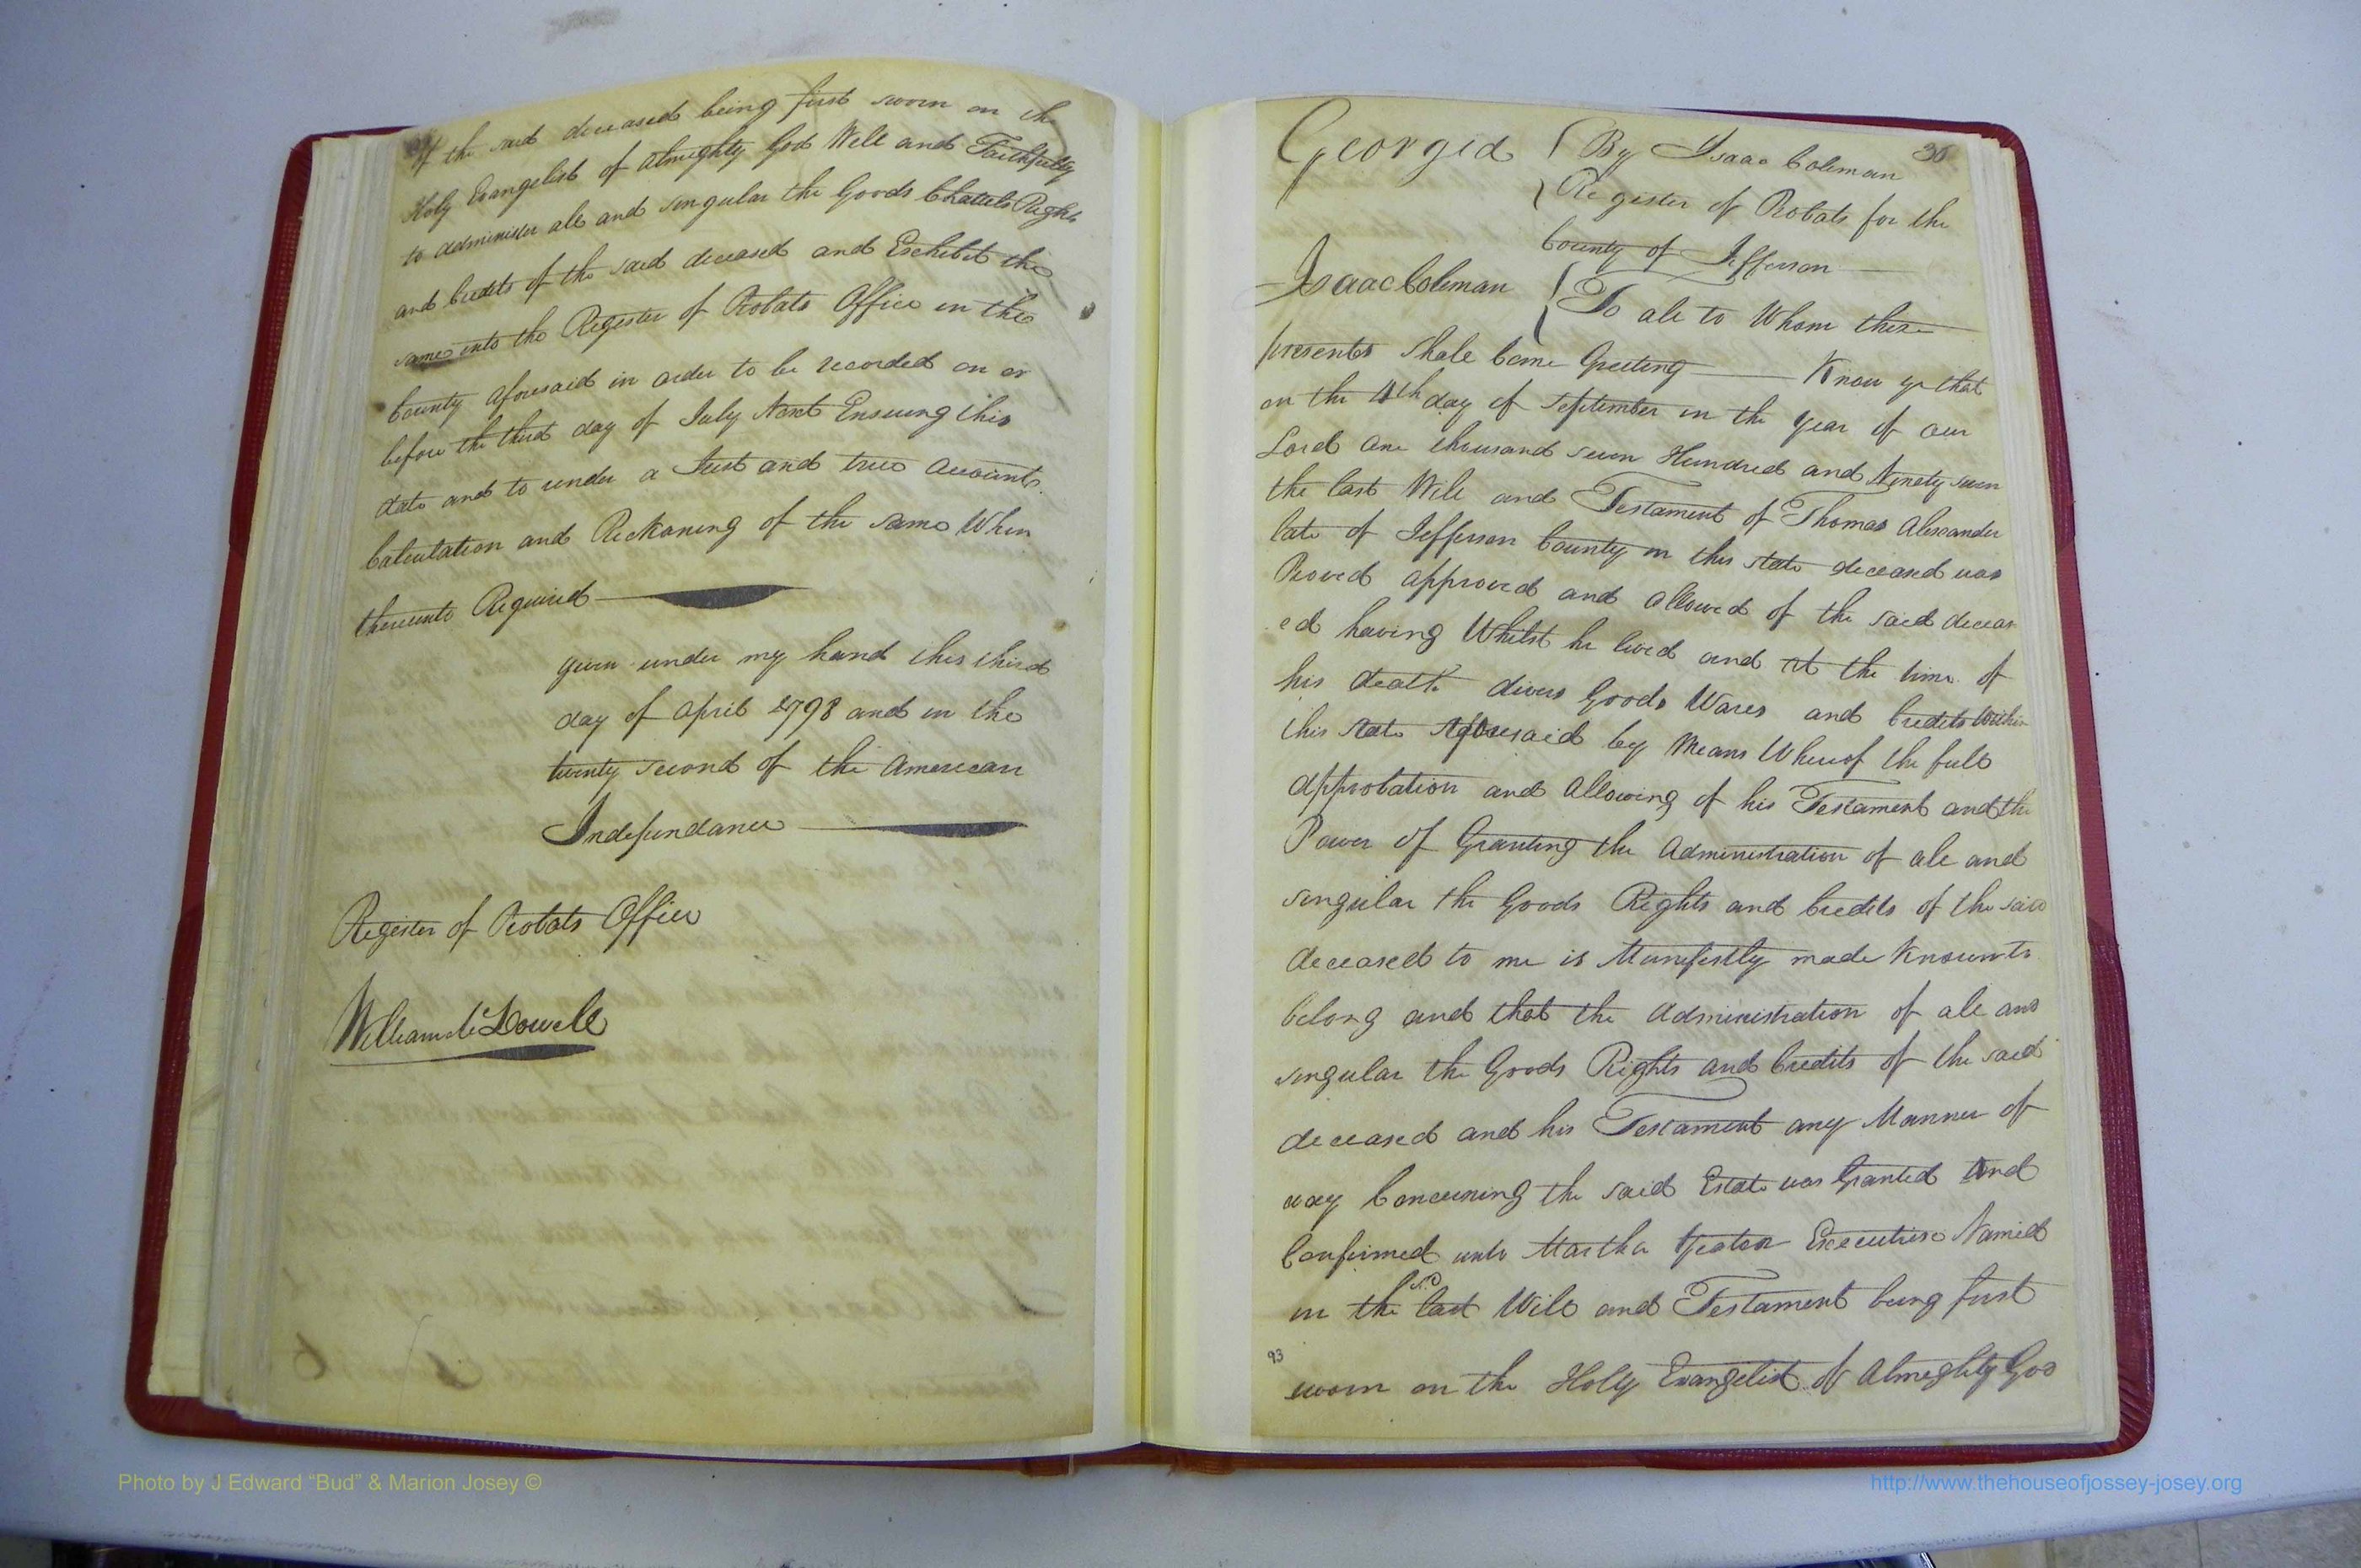 of the said deceased being first sworn on the
Holy Evangelist of Almighty God Well and Faithfully
to administer all and singular the Goods Chattels Rights
and Credits of the said deceased and Eschibit the
same into the Register of Probats Office in the
County aforesaid in order to be recorded on or
before the third day of July Next Ensuing this
date and to render a Just and true account
Calculation and Reckoning of the same When
thereunto Required
given under my hand this third
day of april 1798 and in the
twenty second of the American
Independance
Register of Probats Office
William McDowell
36
Georgia By Isaac Coleman
Register of Probats for the
County of Jefferson
Isaac Coleman To all to Whom these
presents shall Come Greeting Know ye that
on the 11th day of September in the year of our
Lord one thousand seven Hundred and Ninety seven
the last Will and Testament of Thomas Alexander
late of Jefferson County in this state deceased was
Proved approved and allowed of the said deceas
ed having Whilst he lived and at the time of
his death divers Goods Wares and Credits Within
this state aforesaid by Means Whereof the full
approbation and allowing of his Testament and the
Power of Granting the administration of all and
singular the Goods Rights and Credits of the said
deceased to me is Manifestly made Known to
belong and that the administration of all and
singular the Goods Rights and Credits of the said
deceased and his Testament any Manner of
way Concerning the said Estate was Granted And
Confirmed unto Martha Executrix Named
in the sd. last Will and Testament being first
93
sworn on the Holy Evangelist of Almighty God
Photo by J Edward “Bud” & Marion Josey ©
http://www.thehouseofjossey-josey.org